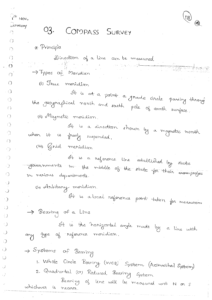 03. COMPASS SURVEY
* Principle
Direction of a line can be measured
→ Types of Meridian
(i) True meridian
It is a great circle passing through
the geographical north and south pole of earth surface
(ii) Magnetic meridian
It is a direction shown by a magnetic needle
when it is freely suspended.
(iii) Grid meridian
It is a reference line established by state
governments in the middle of the state for their own project
in various departments.
(iv) Arbitrary meridian
It is a local reference point taken for measurement
→ Bearing of a Line
It is the horizontal angle made by a line with
any type of reference meridian.
→ Systems of Bearing
1. Whole Circle Bearing (WCB) System (Azimuthal System)
2. Quadrantal (or) Reduced Bearing System
Bearing of line will be measured wrt to N or S
whichever is nearer